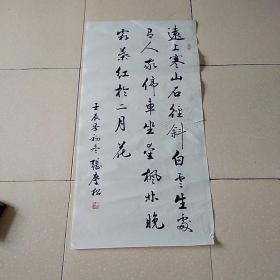 遠上寒山石徑斜白雲生處
有人家停車坐愛楓林晚
霜葉紅於二月花
壬辰年初冬張慶松